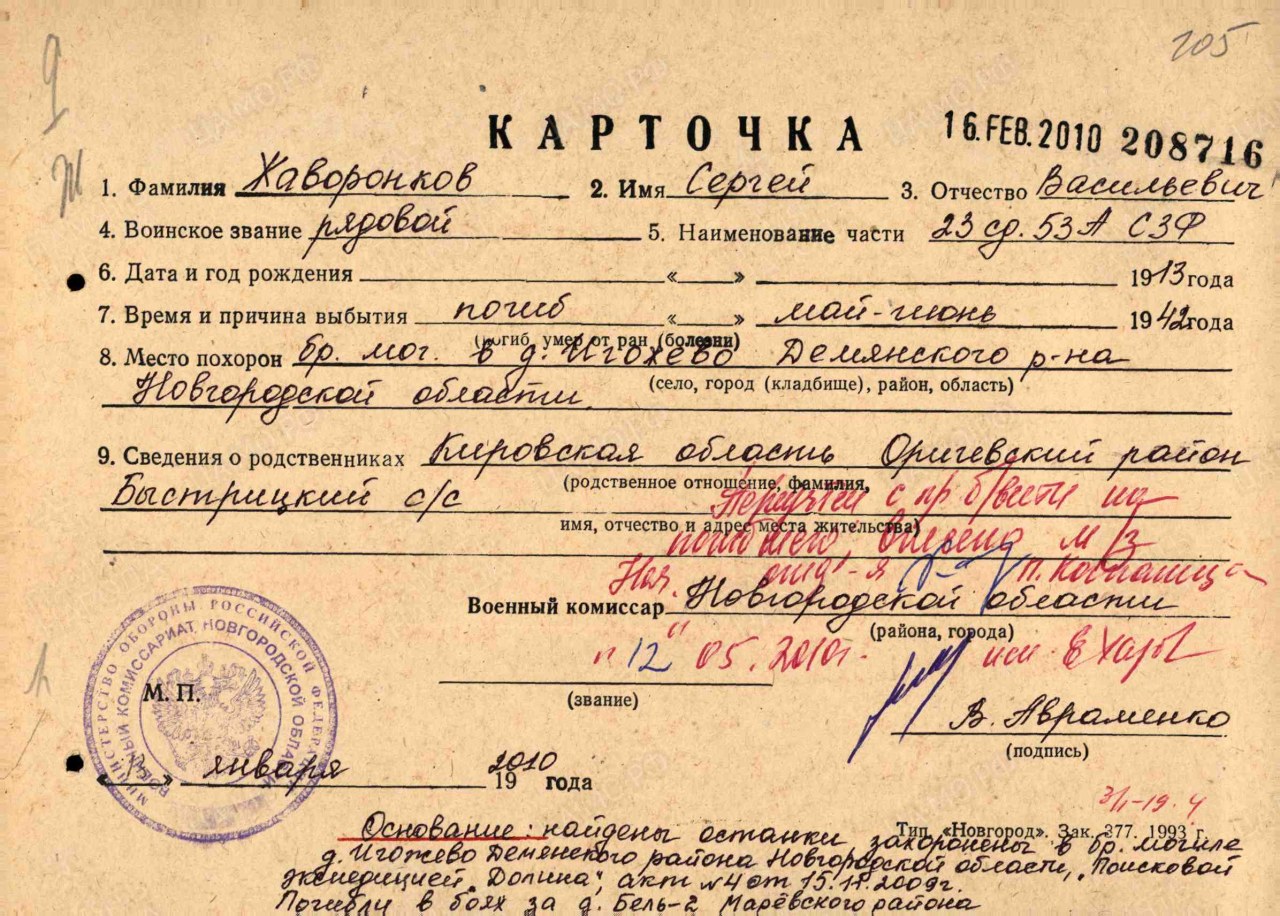 205
9
КАРТОЧКА
16.FEB.2010 208716
Ж
1. Фамилия Жаворонков 2. Имя Сергей 3. Отчество Васильевич
4. Воинское звание рядовой 5. Наименование части 23 сд. 53А СЗФ
6. Дата и год рождения « » 1913 года
7. Время и причина выбытия погиб « » май-июнь 1942 года
(погиб, умер от ран (болезни)
8. Место похорон бр. мог. в д. Игожево Демянского р-на
(село, город (кладбище), район, область)
Новгородской области
9. Сведения о родственниках Кировская область Оричевский район
(родственное отношение, фамилия,
Быстрицкий с/с
Переучтен с пр б/вести на
имя, отчество и адрес места жительства)
погибшего, внесено м/з
Военный комиссар Новгородской области
(района, города)
"12" 05. 2010г.
(звание)
В. Авраменко
(подпись)
М. П.
МИНИСТЕРСТВО ОБОРОНЫ РОССИЙСКОЙ ФЕДЕРАЦИИ
ВОЕННЫЙ КОМИССАРИАТ НОВГОРОДСКОЙ ОБЛАСТИ
января 19 2010 года
Тип. «Новгород». Зак. 377. 1993 г.
Основание: найдены останки, захоронены в бр. могиле
д. Игожево Демянского района Новгородской области, Поисковой
экспедицией "Долина", акт №4 от 15.11.2009г.
Погибли в боях за д. Бель-2 Марёвского района